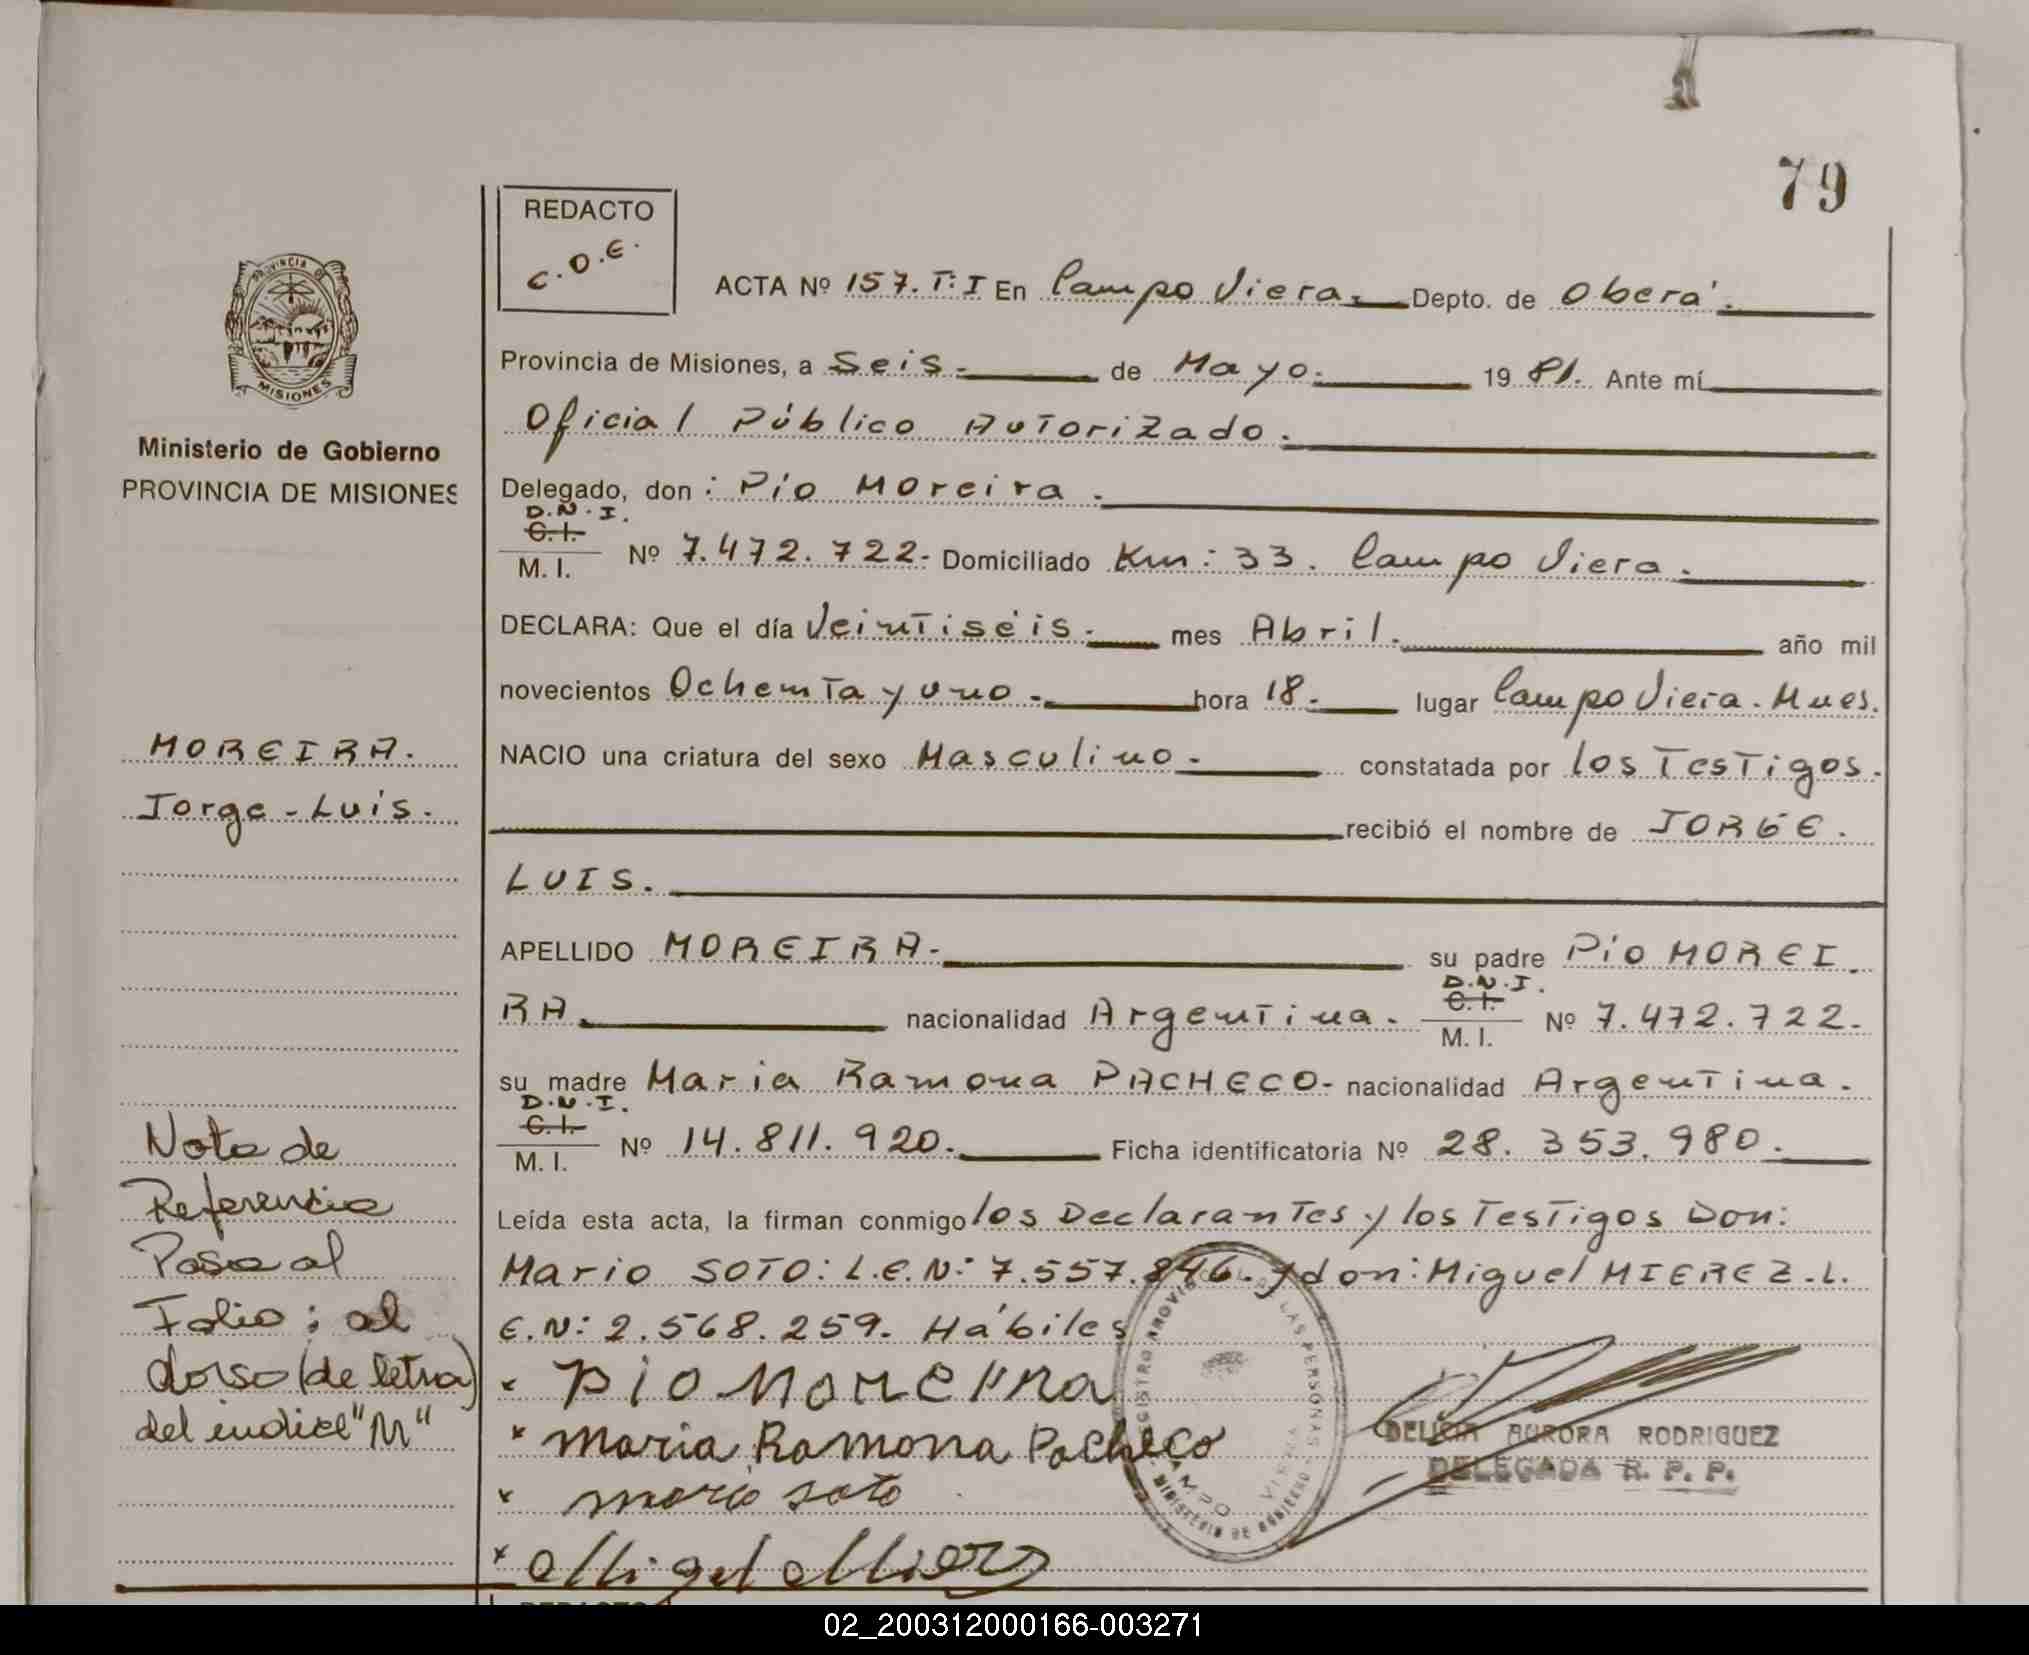 79
REDACTO
C.O.E.
ACTA Nº 157. T: I En Campo Viera. Depto. de Oberá.
Provincia de Misiones, a Seis. de Mayo. 19 81. Ante mí
Oficial Público Autorizado.
Delegado, don: Pío Moreira.
D.N.I.
C.I.
M. I. Nº 7.472.722. Domiciliado Km: 33. Campo Viera.
DECLARA: Que el día Veintiséis. mes Abril. año mil
novecientos Ochenta y uno. hora 18. lugar Campo Viera. Mnes.
NACIO una criatura del sexo Masculino. constatada por los Testigos.
recibió el nombre de JORGE.
LUIS.
APELLIDO MOREIRA. su padre Pío MOREI
RA. nacionalidad Argentina. D.N.I. C.I. M. I. Nº 7.472.722.
su madre Maria Ramona PACHECO. nacionalidad Argentina.
D.N.I.
C.I.
M. I. Nº 14.811.920. Ficha identificatoria Nº 28.353.980.
Leída esta acta, la firman conmigo los Declarantes y los Testigos Don:
Mario SOTO: L.E.N: 7.557.846. y don: Miguel MIEREZ. L.
E.N: 2.568.259. Hábiles
x Pio Moreira
x Maria Ramona Pacheco
x mario soto
x
REGISTRO PROVINCIAL DE LAS PERSONAS
CAMPO VIERA
MINISTERIO DE GOBIERNO
DELICIA AURORA RODRIGUEZ
DELEGADA R. P. P.
PROVINCIA DE
MISIONES
Ministerio de Gobierno
PROVINCIA DE MISIONES
MOREIRA.
Jorge - Luis.
Nota de
Referencia
Pasa al
Folio: al
dorso (de letra)
del indice "M"
REDACTO
02_200312000166-003271